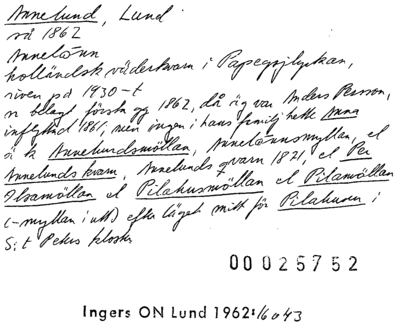 Annelund, Lund
så 1862
Annelönn
holländsk väderkvarn i Papegojlyckan,
riven på 1930-t
n belagt första gg 1862, då äg var Anders Persson,
inflyttad 1861, men ingen i hans familj hette Anna
ä k Annelundsmöllan, Annelönnsmyllan, el
Annelunds kvarn, Annelunds qvarn 1821, el Per
Olsamöllan el Pilahusmöllan el Pilamöllan
(-myllan i utt) efter läget mitt för Pilahusen i
S:t Peters kloster
00025752
Ingers ON Lund 1962: 16 o 43